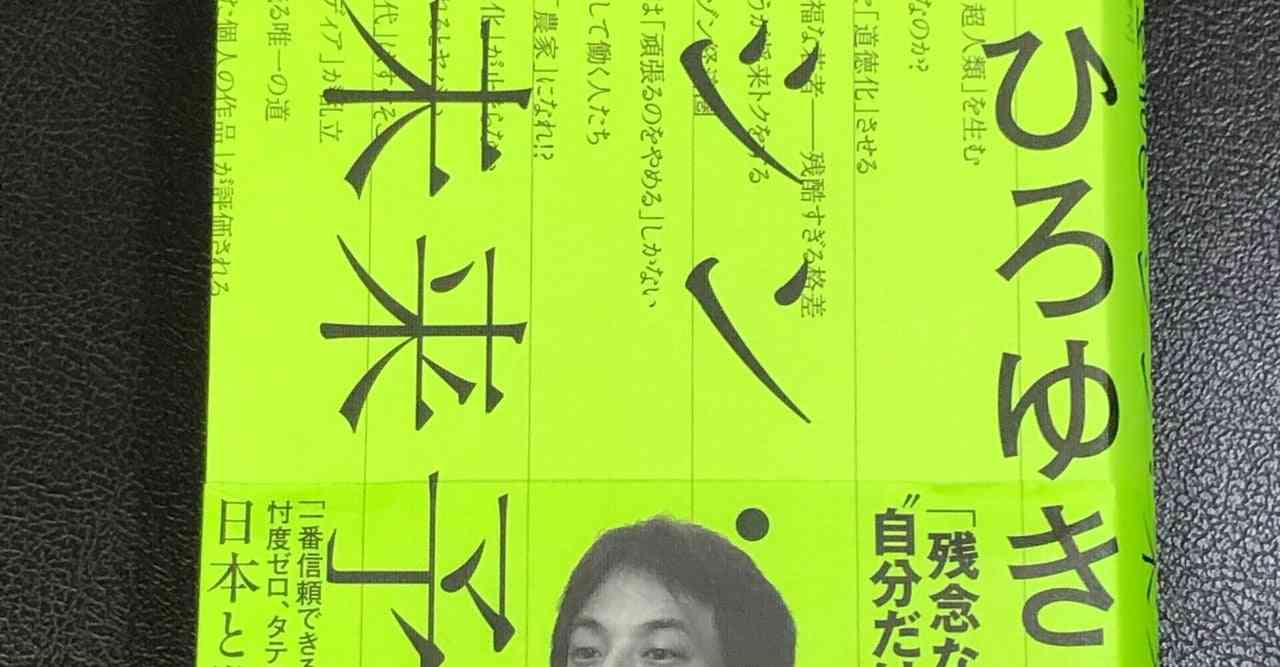 ひろゆき
超人類」を生む
なのか?
「道徳化」させる
福な若者――残酷すぎる格差
うが将来トクをする
シン・
ゾン経済圏
は「頑張るのをやめる」しかない
して働く人たち
「農家」になれ!?
化」が止まらない
未来予
ディア」が乱立
る唯一の道
た個人の作品」が評価される
「残念な
〝自分だけ
「一番信頼できる
忖度ゼロ、タテ
日本と